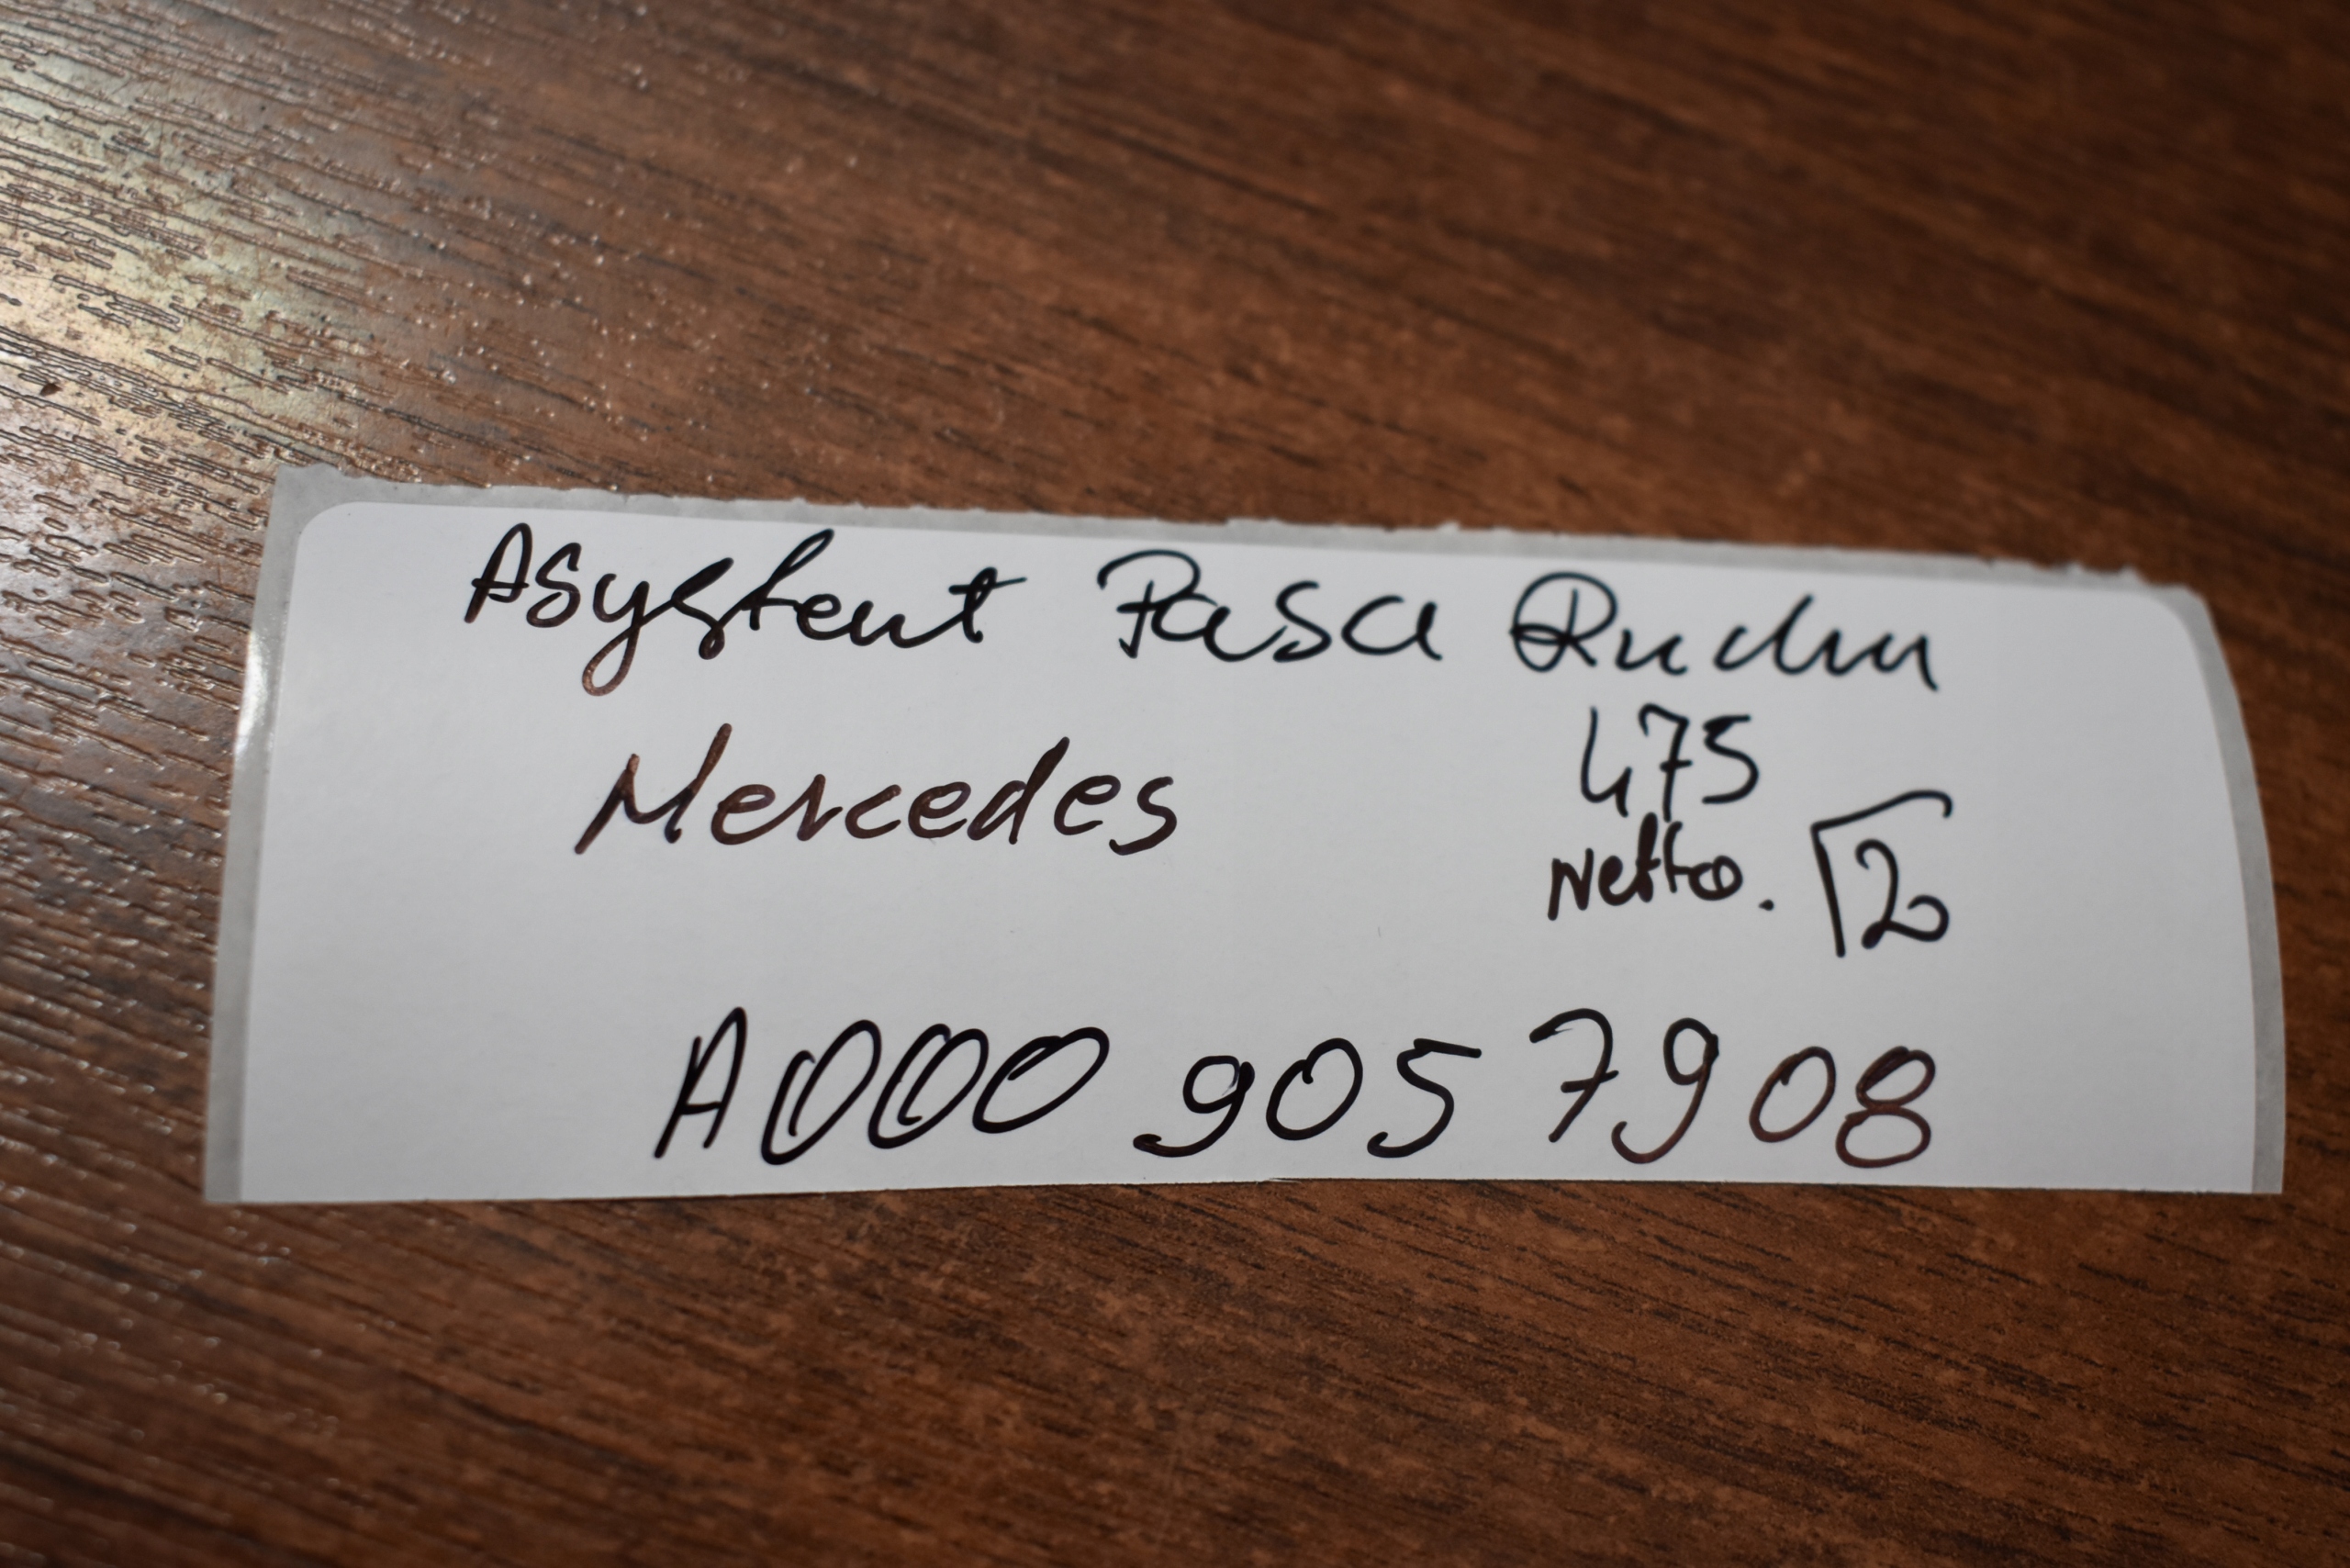 Asystent Pasa Ruchu
Mercedes
475
netto. 2
A000 905 7908